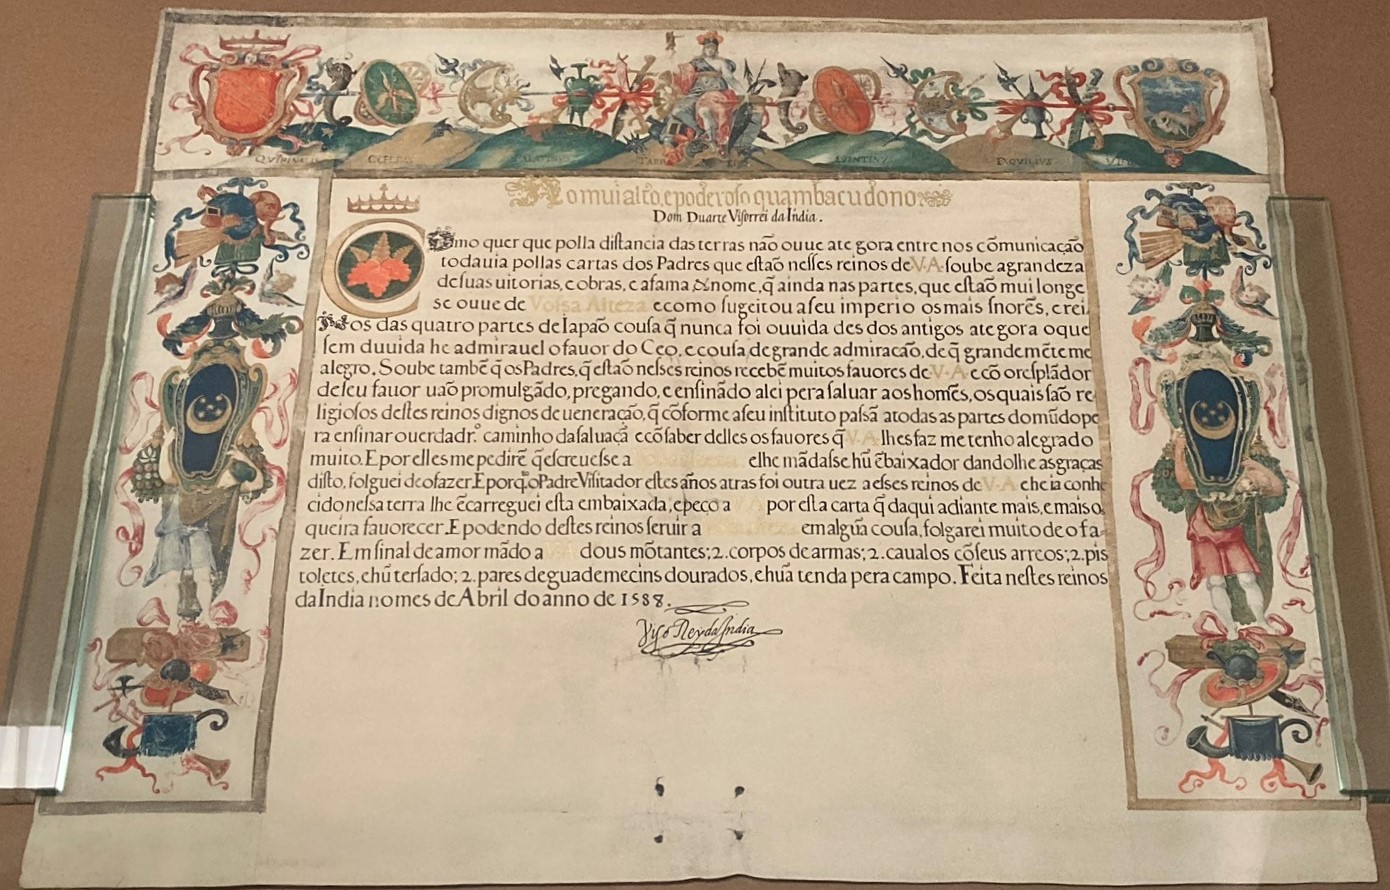 QVIRINALIS CAELIVS PALATINVS TARPEIVS AVENTINVS EXQVILIVS
Ao mui alto, e poderoso quambacudono
Dom Duarte Visorrei da India.
Como quer que polla distancia das terras não ouue ate gora entre nos cõmunicação
todauia pollas cartas dos Padres que estaõ nesses reinos de V.A. soube a grandeza
de suas uitorias, e obras, e a fama & nome, q̃ ainda nas partes, que estaõ mui longe
se ouue de Vossa Alteza e como sugeitou a seu imperio os mais snorẽs, e rei
nos das quatro partes de Iapaõ cousa q̃ nunca foi ouuida des dos antigos ate gora o que
sem duuida he admirauel o fauor do Ceo, e cousa de grande admiracaõ, de q̃ grandemẽte me
alegro. Soube tambẽ q̃ os Padres, q̃ estaõ nesses reinos recebẽ muitos fauores de V.A. e cõ o resplãdor
de seu fauor uaõ promulgãdo, pregando, e ensinãdo a lei pera saluar aos homẽs, os quais saõ re-
ligiosos destes reinos dignos de ueneração, q̃ cõforme a seu instituto passã a todas as partes do mũdo pe
ra ensinar o uerdadrº caminho da saluaçã e cõ saber delles os fauores q̃ V.A. lhes faz me tenho alegrado
muito. E por elles me pedirẽ q̃ escreuesse a e lhe mãdasse hũ ẽbaixador dandolhe as graças
disto, folguei de o fazer. E porq̃ o Padre Visitador estes años atras foi outra uez a esses reinos de V.A. e he ia conhe
cido nessa terra lhe ẽcarreguei esta embaixada, e peço a V.A. por esta carta q̃ daqui adiante mais, e mais o
queira fauorecer. E podendo destes reinos seruir a em algũa cousa, folgarei muito de o fa-
zer. Em sinal de amor mãdo a dous mõtantes; 2. corpos de armas; 2. caualos cõ seus arreos; 2. pis
toletes, e hũ tersado; 2. pares de guademecins dourados, e hũa tenda pera campo. Feita nestes reinos
da India no mes de Abril do anno de 1588.
Viso Rey da India